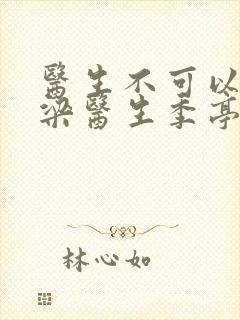 醫生不可以
梁醫生季亭
林心如